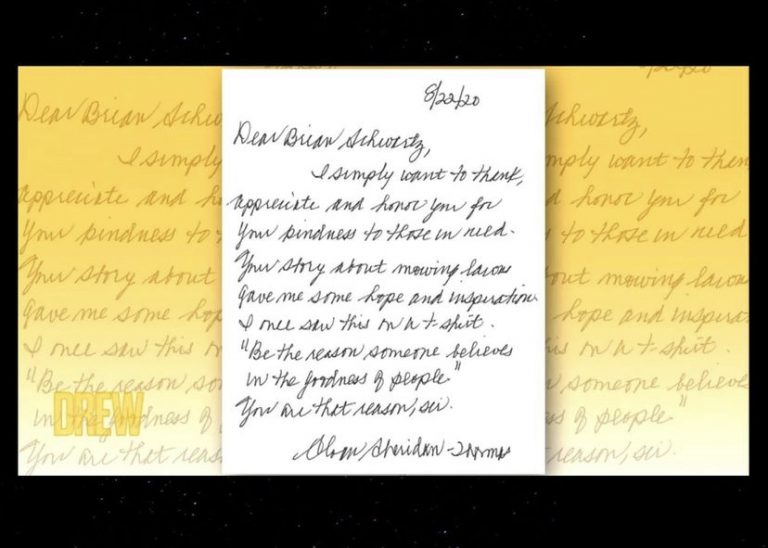 8/22/20
Dear Brian Schwartz,
I simply want to thank,
appreciate and honor you for
your kindness to those in need.
Your story about mowing lawns
gave me some hope and inspiration
I once saw this on a t-shirt.
"Be the reason someone believes
in the goodness of people"
You are that reason, sir.
Sheridan-Thomas
DREW